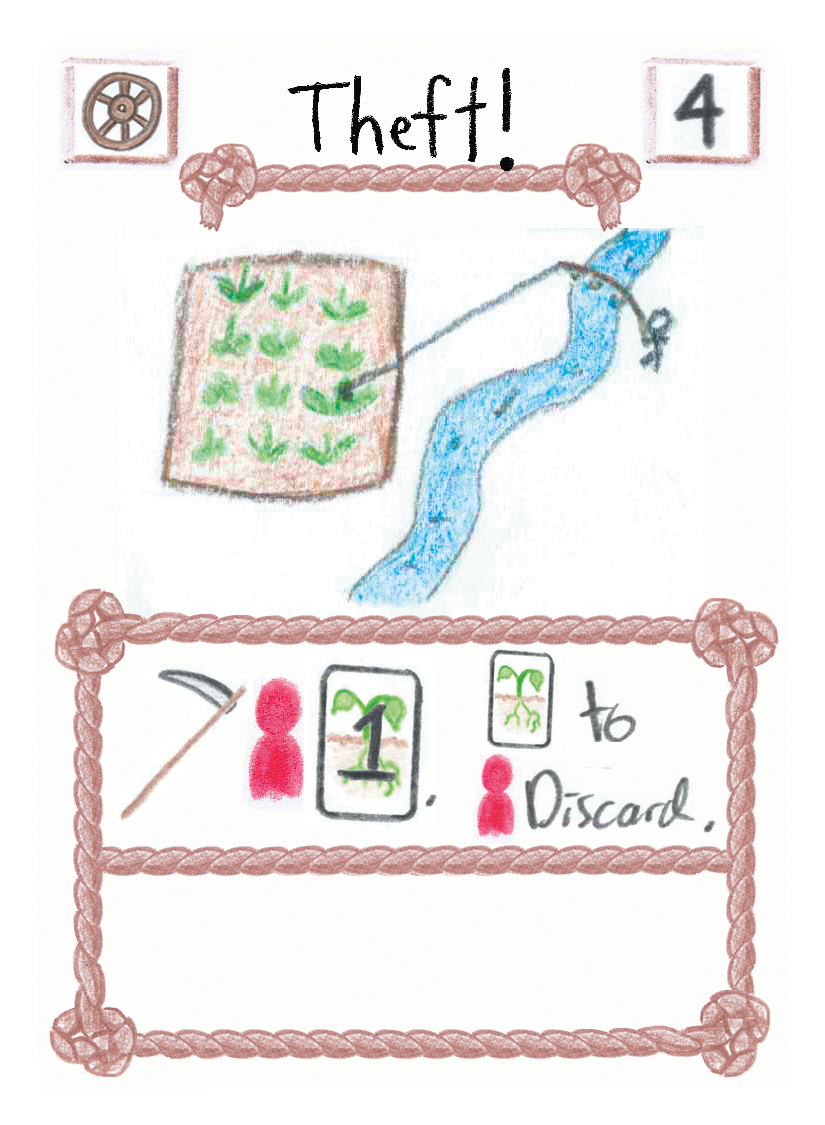 Theft!
4
1. to
Discard.